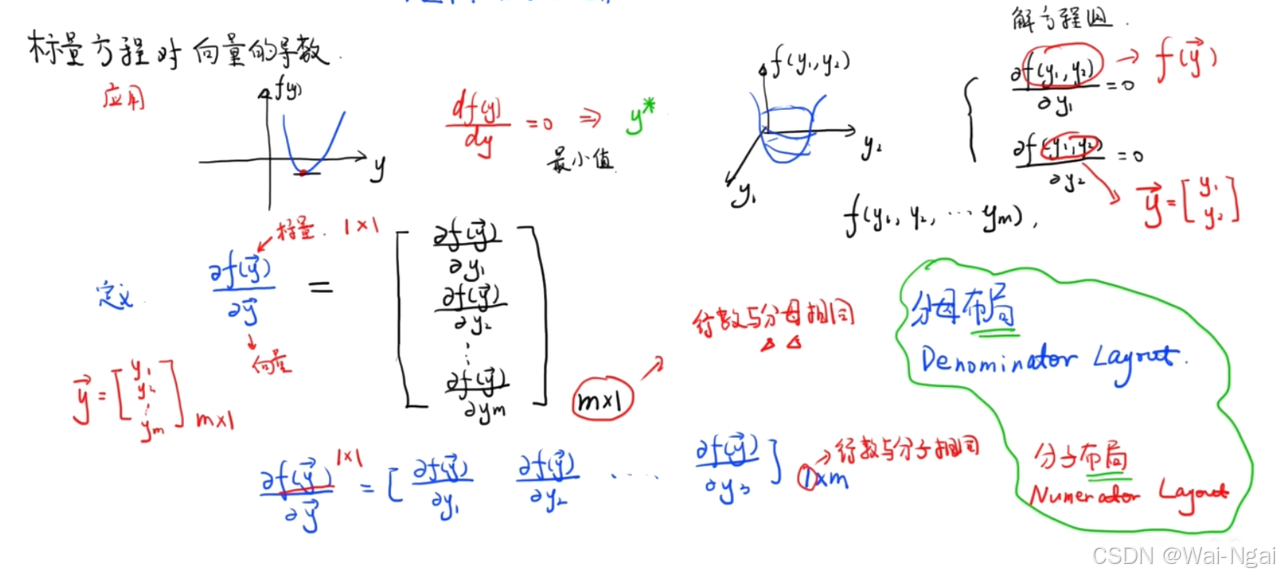 标量方程对向量的导数.
应用
f(y)
y
df(y)/dy = 0 ⇒ y*
最小值
f(y₁,y₂)
y₂
y₁
解方程组.
∂f(y₁,y₂)/∂y₁ = 0 → f(y⃗)
∂f(y₁,y₂)/∂y₂ = 0
y⃗ = [y₁ y₂]
f(y₁, y₂, ⋯ yₘ),
标量. 1×1
定义 ∂f(y⃗)/∂y⃗ = [∂f(y⃗)/∂y₁ ∂f(y⃗)/∂y₂ ⋮ ∂f(y⃗)/∂yₘ] m×1
向量
y⃗ = [y₁ y₂ ⋮ yₘ] m×1
行数与分母相同
分母布局
Denominator Layout.
∂f(y⃗)/∂y⃗ 1×1 = [∂f(y⃗)/∂y₁ ∂f(y⃗)/∂y₂ ⋯ ∂f(y⃗)/∂y₃] 1×m
行数与分子相同
分子布局
Numerator Layout
CSDN @Wai-Ngai